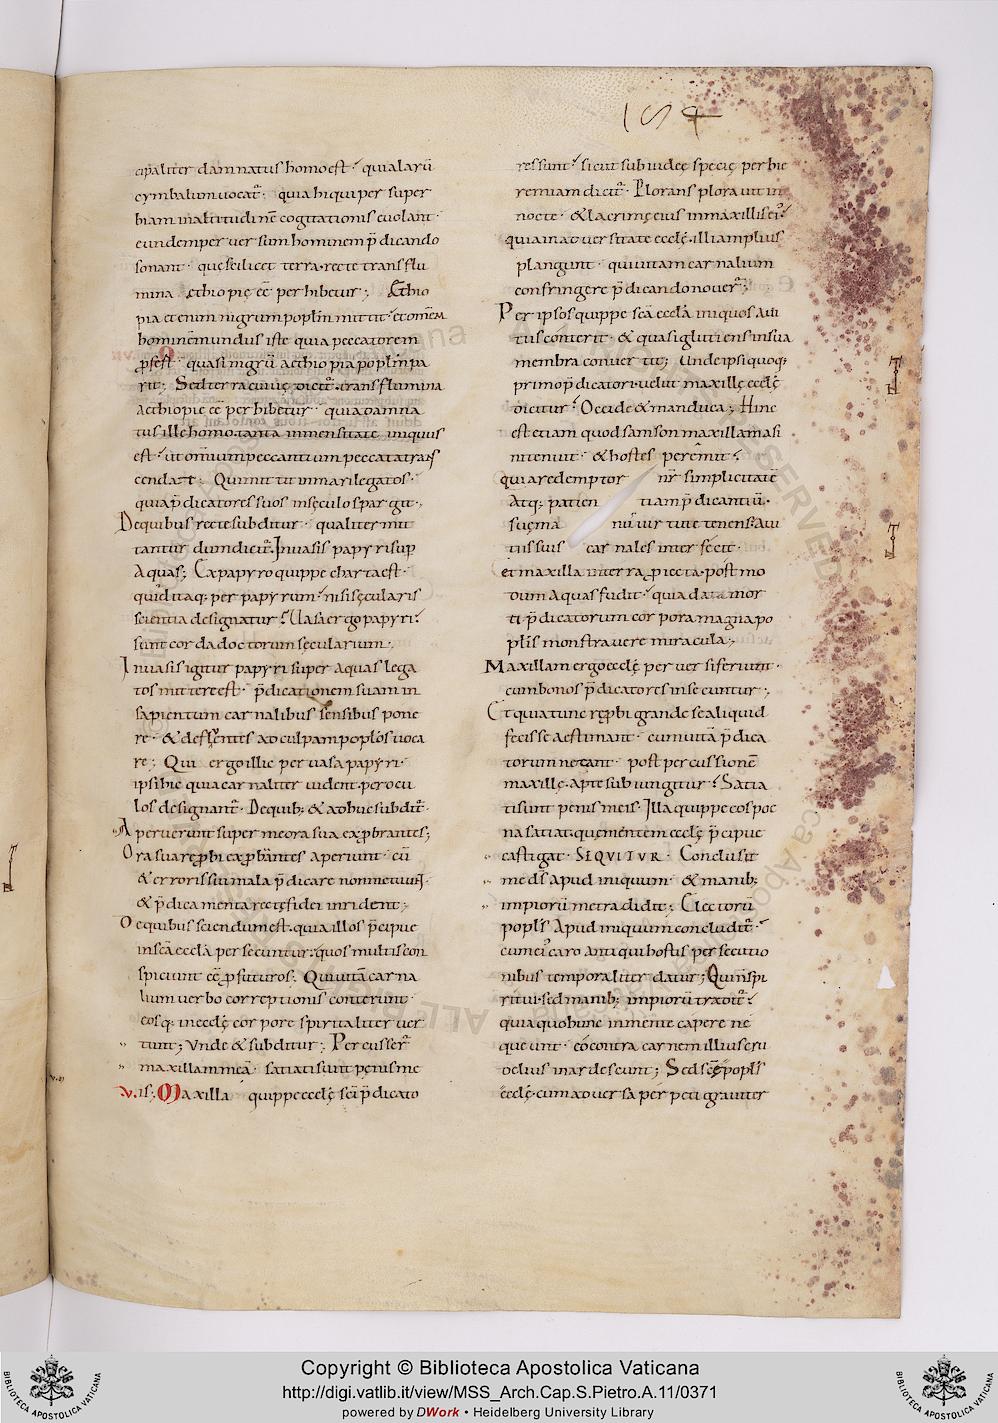 154
cipaliter damnatus homo est; qui alarū
cymbalum vocat̄. quia hi qui per super
biam in altitudinē cogitationis evolant.
eundem perversum hominem p̄dicando
sonant. quę scilicet terra. recte trans flu
mina ęthiopię eē perhibetur; Ęthio
pia etenim nigrum popl̄m mittit. et omēm
hominēm mundus iste quia peccatorem
p̄fert. quasi nigrū aethiopia popl̄m pa
rit; Sed terra cuius dicit̄. trans flumina
aethiopię eē perhibetur. quia damna
tus ille homo. tanta immensitate iniquus
est. ut omnium peccantium peccata trans
cendat. Qui mittit in mari legatos.
quia p̄dicatores suos in sęculo spargit.
De quibus recte subditur. qualiter mit
tantur dum dicit̄. In vasis papyri sup
aquas; Ex papyro quippe charta est.
quid itaq; per papyrum nisi sęcularis
scientia designatur? Vasa ergo papyri
sunt corda doctorum sęcularium.
In vasis igitur papyri super aquas lega
tos mittere est. p̄dicationem suam in
sapientum carnalibus sensibus pone
re. & defluentes ad culpam popl̄os voca
re; Qui ergo illic per vasa papyri.
ipsi hic quia carnaliter vident. per ocu
los designant̄. De quib; & adhuc subdit̄.
Aperuerunt super me ora sua exprobrantes;
Ora sua reprobi exprobrantes aperiunt. cū
& erroris sui mala p̄dicare non metuunt.
& p̄dicamenta rectę fidei inrident;
De quibus sciendum est. quia illos p̄cipue
in scā ecclā persecuntur. quos multis con
spiciunt eē profuturos; Qui vitā carna
lium verbo correptionis conterunt.
eosq; in ecclę corpore spiritaliter ver
tunt; Unde & subditur; Percusser̄
maxillam meā. satiati sunt pęnis me
.v. is; Maxilla quippe ecclę sci p̄dicato
res sunt; sicut sub iudeę specię per hie
remiam dicit̄. Plorans ploravit in
nocte. & lacrimę eius in maxillis ei̓;
quia in adversitate ecclę. illi amplius
plangunt. qui vitam carnalium
confringere p̄dicando nover̄;
Per ipsos quippe scā ecclā iniquos a vi
tiis conterit. & quasi glutiens in sua
membra convertit; Unde ipsi quoq;
primo p̄dicatori. velut maxillę ecclę
dicitur. Occide & manduca; Hinc
est etiam quod samson maxillam asi
ni tenuit. & hostes peremit.
quia redemptor nr̄ simplicitatē
Atq; patien tiam p̄dicantiū.
suę ma nu virtute tenens. a vi
tiis suis carnales interfecit.
et maxilla in terra proiecta. post mo
dum aquas fudit. quia data mor
ti. p̄dicatorum corpora magna po
plis monstravere miracula;
Maxillam ergo ecclę perversi feriunt.
cum bonos p̄dicatores insecuntur;
Et quia tunc rep̄bi grande se aliquid
fecisse aestimant. cum vitā p̄dica
torum necant. post percussionē
maxillę. apte subiungitur. Satia
ti sunt penis meis. Illa quippe eos poe
na satiat. quę mentem ecclę p̄cipue
castigat. SEQUITUR. Conclusit
me dš apud iniquum. & manib;
impiorū me tradidit; Electorū
popl̄s apud iniquum concludit̄.
cum ei̓ caro antiqui hostis persecutio
nibus temporaliter datur; Qui n̄ spi
ritui. sed manib; impiorū tradit̄.
quia quo hunc in mente capere ne
queunt. eo contra carnem illius cru
delius inardescunt; Sed sę popl̄s
ecclę. cum adversa perpeti graviter
Copyright © Biblioteca Apostolica Vaticana
http://digi.vatlib.it/view/MSS_Arch.Cap.S.Pietro.A.11/0371
powered by DWork • Heidelberg University Library